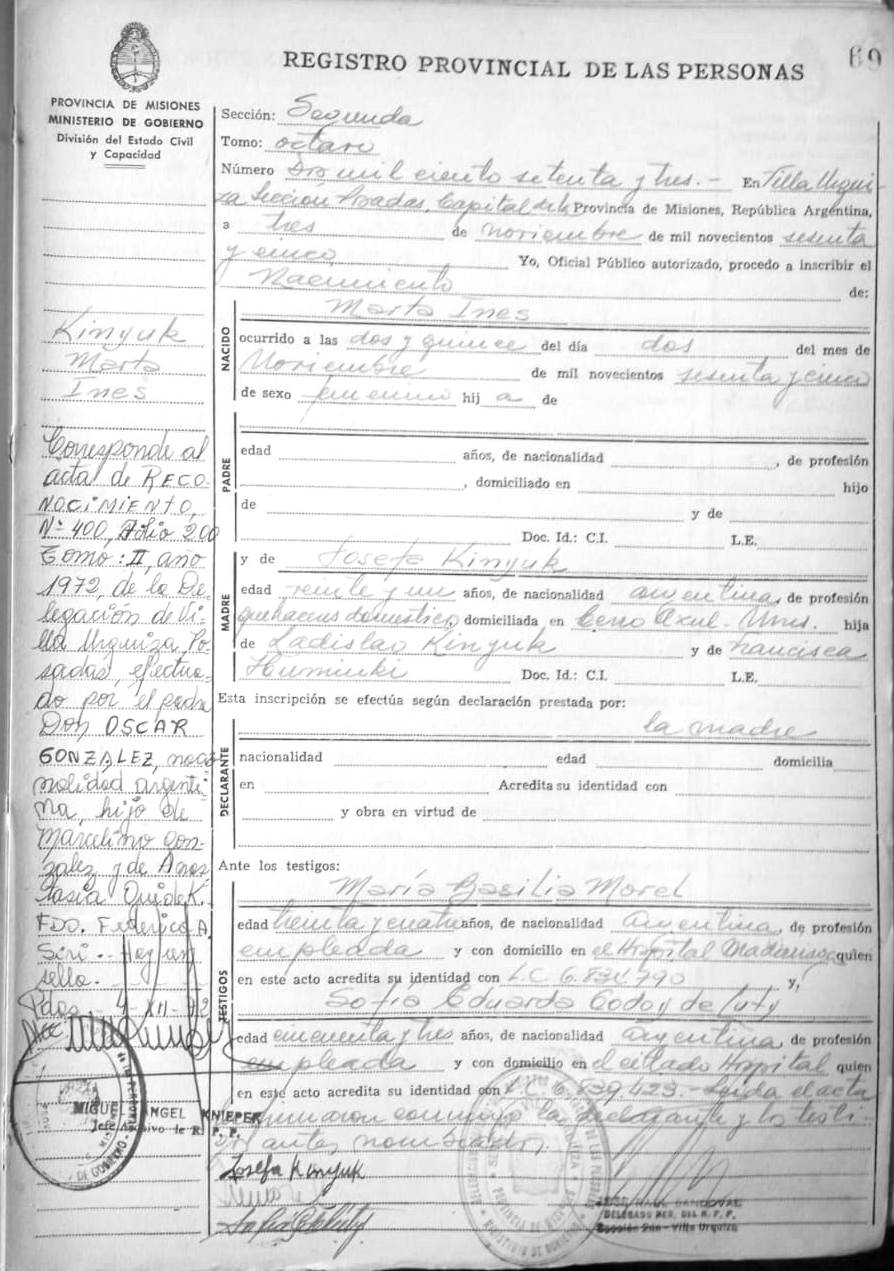 69
REGISTRO PROVINCIAL DE LAS PERSONAS
PROVINCIA DE MISIONES
MINISTERIO DE GOBIERNO
División del Estado Civil
y Capacidad
Sección: Segunda
Tomo: octavo
Número Dos mil ciento setenta y tres.- En Villa Urqui
za Sección Posadas, Capital de la Provincia de Misiones, República Argentina,
a tres de noviembre de mil novecientos sesenta
y cinco Yo, Oficial Público autorizado, procedo a inscribir el
Nacimiento de:
NACIDO
Marta Ines
ocurrido a las dos y quince del día dos del mes de
Noviembre de mil novecientos sesenta y cinco
de sexo femenino hij a de
PADRE
edad años, de nacionalidad , de profesión
, domiciliado en hijo
de y de
Doc. Id.: C.I. L.E.
MADRE
y de Josefa Kinyuk
edad veinte y un años, de nacionalidad argentina, de profesión
quehaceres domestico, domiciliada en Cerro Azul - Mnes. hija
de Ladislao Kinyuk y de Francisca
Huminuki Doc. Id.: C.I. L.E.
Esta inscripción se efectúa según declaración prestada por:
la madre
DECLARANTE
nacionalidad edad domicilia
en Acredita su identidad con
y obra en virtud de
Ante los testigos:
TESTIGOS
María Basilia Morel
edad treinta y cuatro años, de nacionalidad Argentina, de profesión
empleada y con domicilio en el Hospital Madariaga quien
en este acto acredita su identidad con L.C. 6.834.790 y,
Sofia Eduarda Godoy de
edad cincuenta y tres años, de nacionalidad Argentina, de profesión
empleada y con domicilio en el citado Hospital quien
en este acto acredita su identidad con L.C. 6.839.423.- Leida el acta
firmaron conmigo la declarante y los testi-
gos antes nombrados.
Josefa Kinyuk
JOSE RAUL SANDOVAL
DELEGADO REG. DEL R. P. P.
Sección 2da - Villa Urquiza
Kinyuk
Marta
Ines
Corresponde al
acta de RECO-
NOCIMIENTO,
Nº 400, Folio 200
Tomo: II, año
1972, de la De
legación de Vi
lla Urquiza, Po
sadas, efectua-
do por el padre
Don OSCAR
GONZALEZ, nacio
nalidad argenti
na, hijo de
Marcelino Gon-
zalez y de Anas
tasia
FDO. Federico A.
Siri.- Hay un
sello.-
Pdas 4-XII-72
MIGUEL ANGEL KNIEPER
Jefe Archivo de R. P. P.